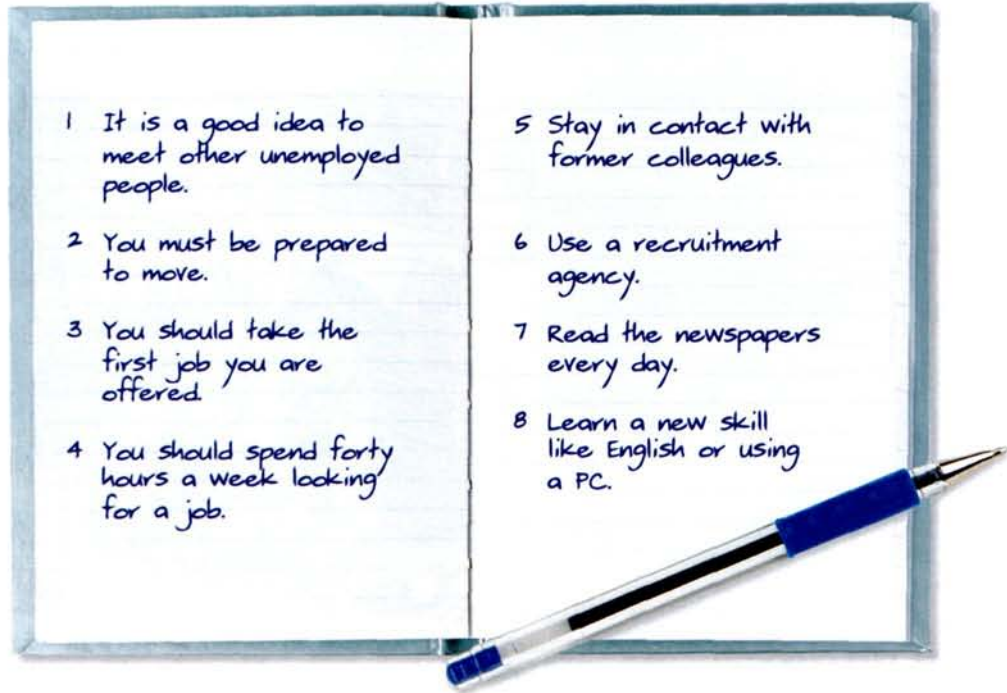 1 It is a good idea to
meet other unemployed
people.
2 You must be prepared
to move.
3 You should take the
first job you are
offered.
4 You should spend forty
hours a week looking
for a job.
5 Stay in contact with
former colleagues.
6 Use a recruitment
agency.
7 Read the newspapers
every day.
8 Learn a new skill
like English or using
a PC.